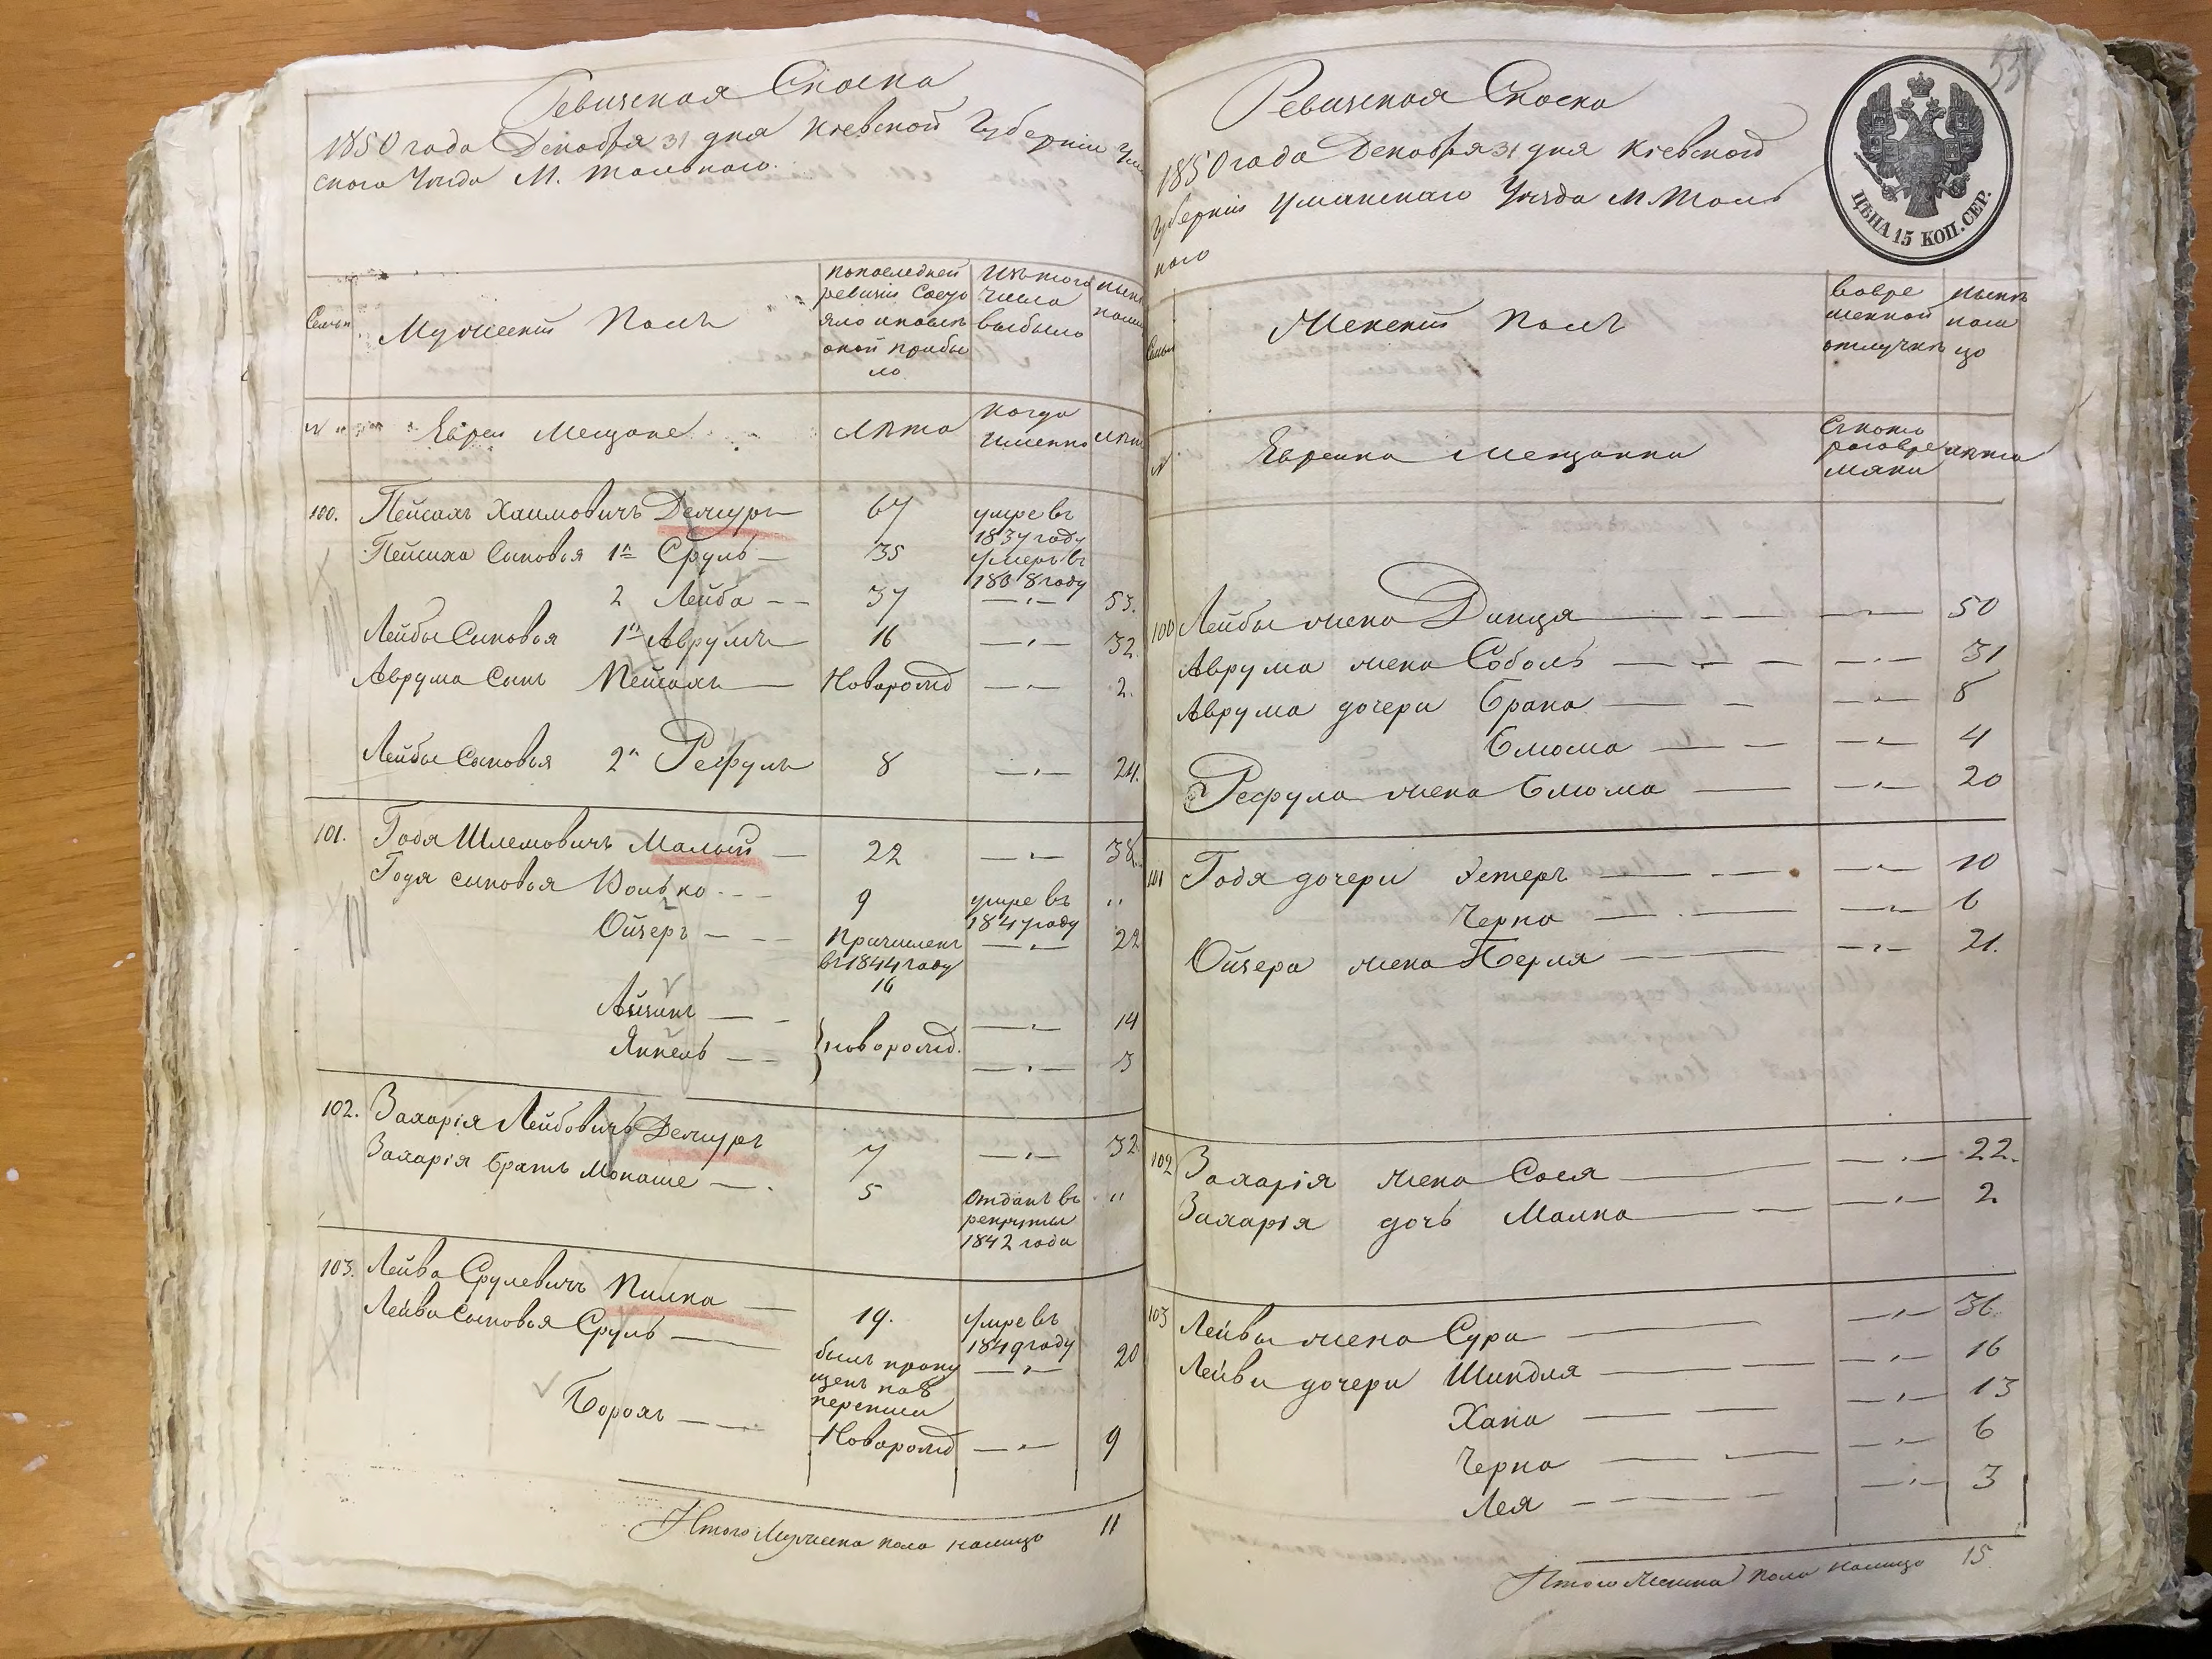 Ревизская Сказка
1850 года Декабря 31 дня Кіевской Губерніи Ума
скаго Уезда М. Тальнаго.
Семьи
Мужескій Полъ
попоследней
ревизіи Состо
яло ипослѣ
оной прибы
ло
Изътого
числа
выбыло
нынѣ
нали
№
Евреи Мещане
Лѣта
Когда
именно
Лѣта
100. Пейсахъ Хаимовичъ Демуръ 67 умре въ
1837 году
Пейсиха Сыновья 1й Сруль 35 Умеръ въ
1838 году
2 Лейба 37 53.
Лейбы Сыновья 1й Аврумъ 16 32.
Аврума Сынъ Пейсахъ Новорожд 2.
Лейбы Сыновья 2й Рефулъ 8 24.
101. Годя Шлемовичъ Малый 22 38.
Годя сыновья Волько 9 умре въ "
1847 году
Ойзеръ Причисленъ 22
въ 1844 году
16
Айзикъ 14
Янкель новорожд. 3
102. Захарія Лейбовичъ Демуръ 7 32
Захарія братъ Монаше 5 Отданъ въ "
рекруты
1842 года
103. Лейба Срулевичъ Пилка 19. Умре въ
1849 году
Лейбы Сыновья Сруль былъ пропу 20
щенъ по 8
переписи
Борохъ Новорожд 9
Итого Мужеска пола налицо 11
55
Ревизская Сказка
1850 года Декабря 31 дня Кіевской
Губерніи Уманскаго Уезда М. Таль
наго
ЦѢНА 15 КОП. СЕР.
Семьи
Женскій Полъ
вовре
менной
отлучкѣ
нынѣ
нали
цо
№
Еврейки Мещанки
Ското
раговре
мяни
лѣта
100 Лейбы жена Динця 50
Аврума жена Соболь 31
Аврума дочери Брана 8
Блюма 4
Рефула жена Блюма 20
101 Годя дочери Эстеръ 10
Черна 6
Ойзера жена Перля 21.
102 Захарія жена Сося 22.
Захарія дочь Малка 2
103 Лейбы жена Сура 36
Лейбы дочери Шиндля 16
Хана 13
Черна 6
Лея 3
Итого Женска пола налицо 15